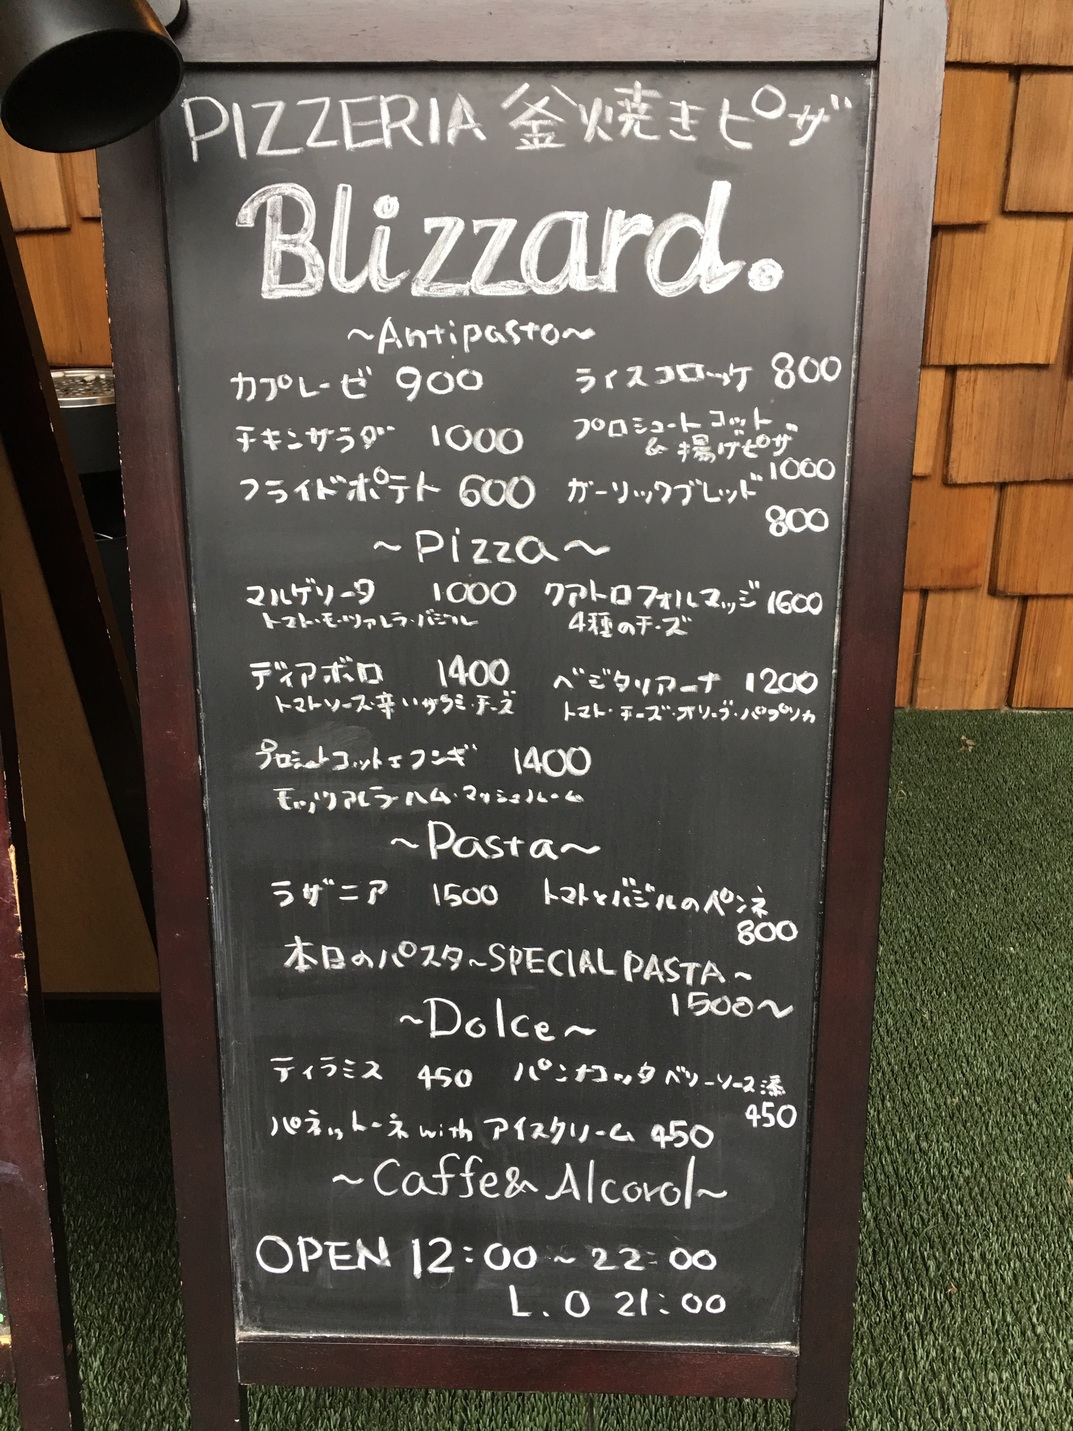 PIZZERIA 釜焼きピザ
Blizzard.
~Antipasto~
カプレーゼ 900
ライスコロッケ 800
チキンサラダ 1000
プロシュートコット
& 揚げピザ
1000
フライドポテト 600
ガーリックブレッド
800
~Pizza~
マルゲリータ 1000
トマト・モッツァレラ・バジル
クアトロフォルマッジ 1600
4種のチーズ
ディアボロ 1400
トマトソース・辛いサラミ・チーズ
ベジタリアーナ 1200
トマト・チーズ・オリーブ・パプリカ
プロシュートコットエフンギ 1400
モッツァレラ・ハム・マッシュルーム
~Pasta~
ラザニア 1500
トマトとバジルのペンネ
800
本日のパスタ~SPECIAL PASTA~
1500~
~Dolce~
ティラミス 450
パンナコッタ ベリーソース添
450
パネットーネ with アイスクリーム 450
~Caffe& Alcorol~
OPEN 12:00 ~ 22:00
L.O 21:00